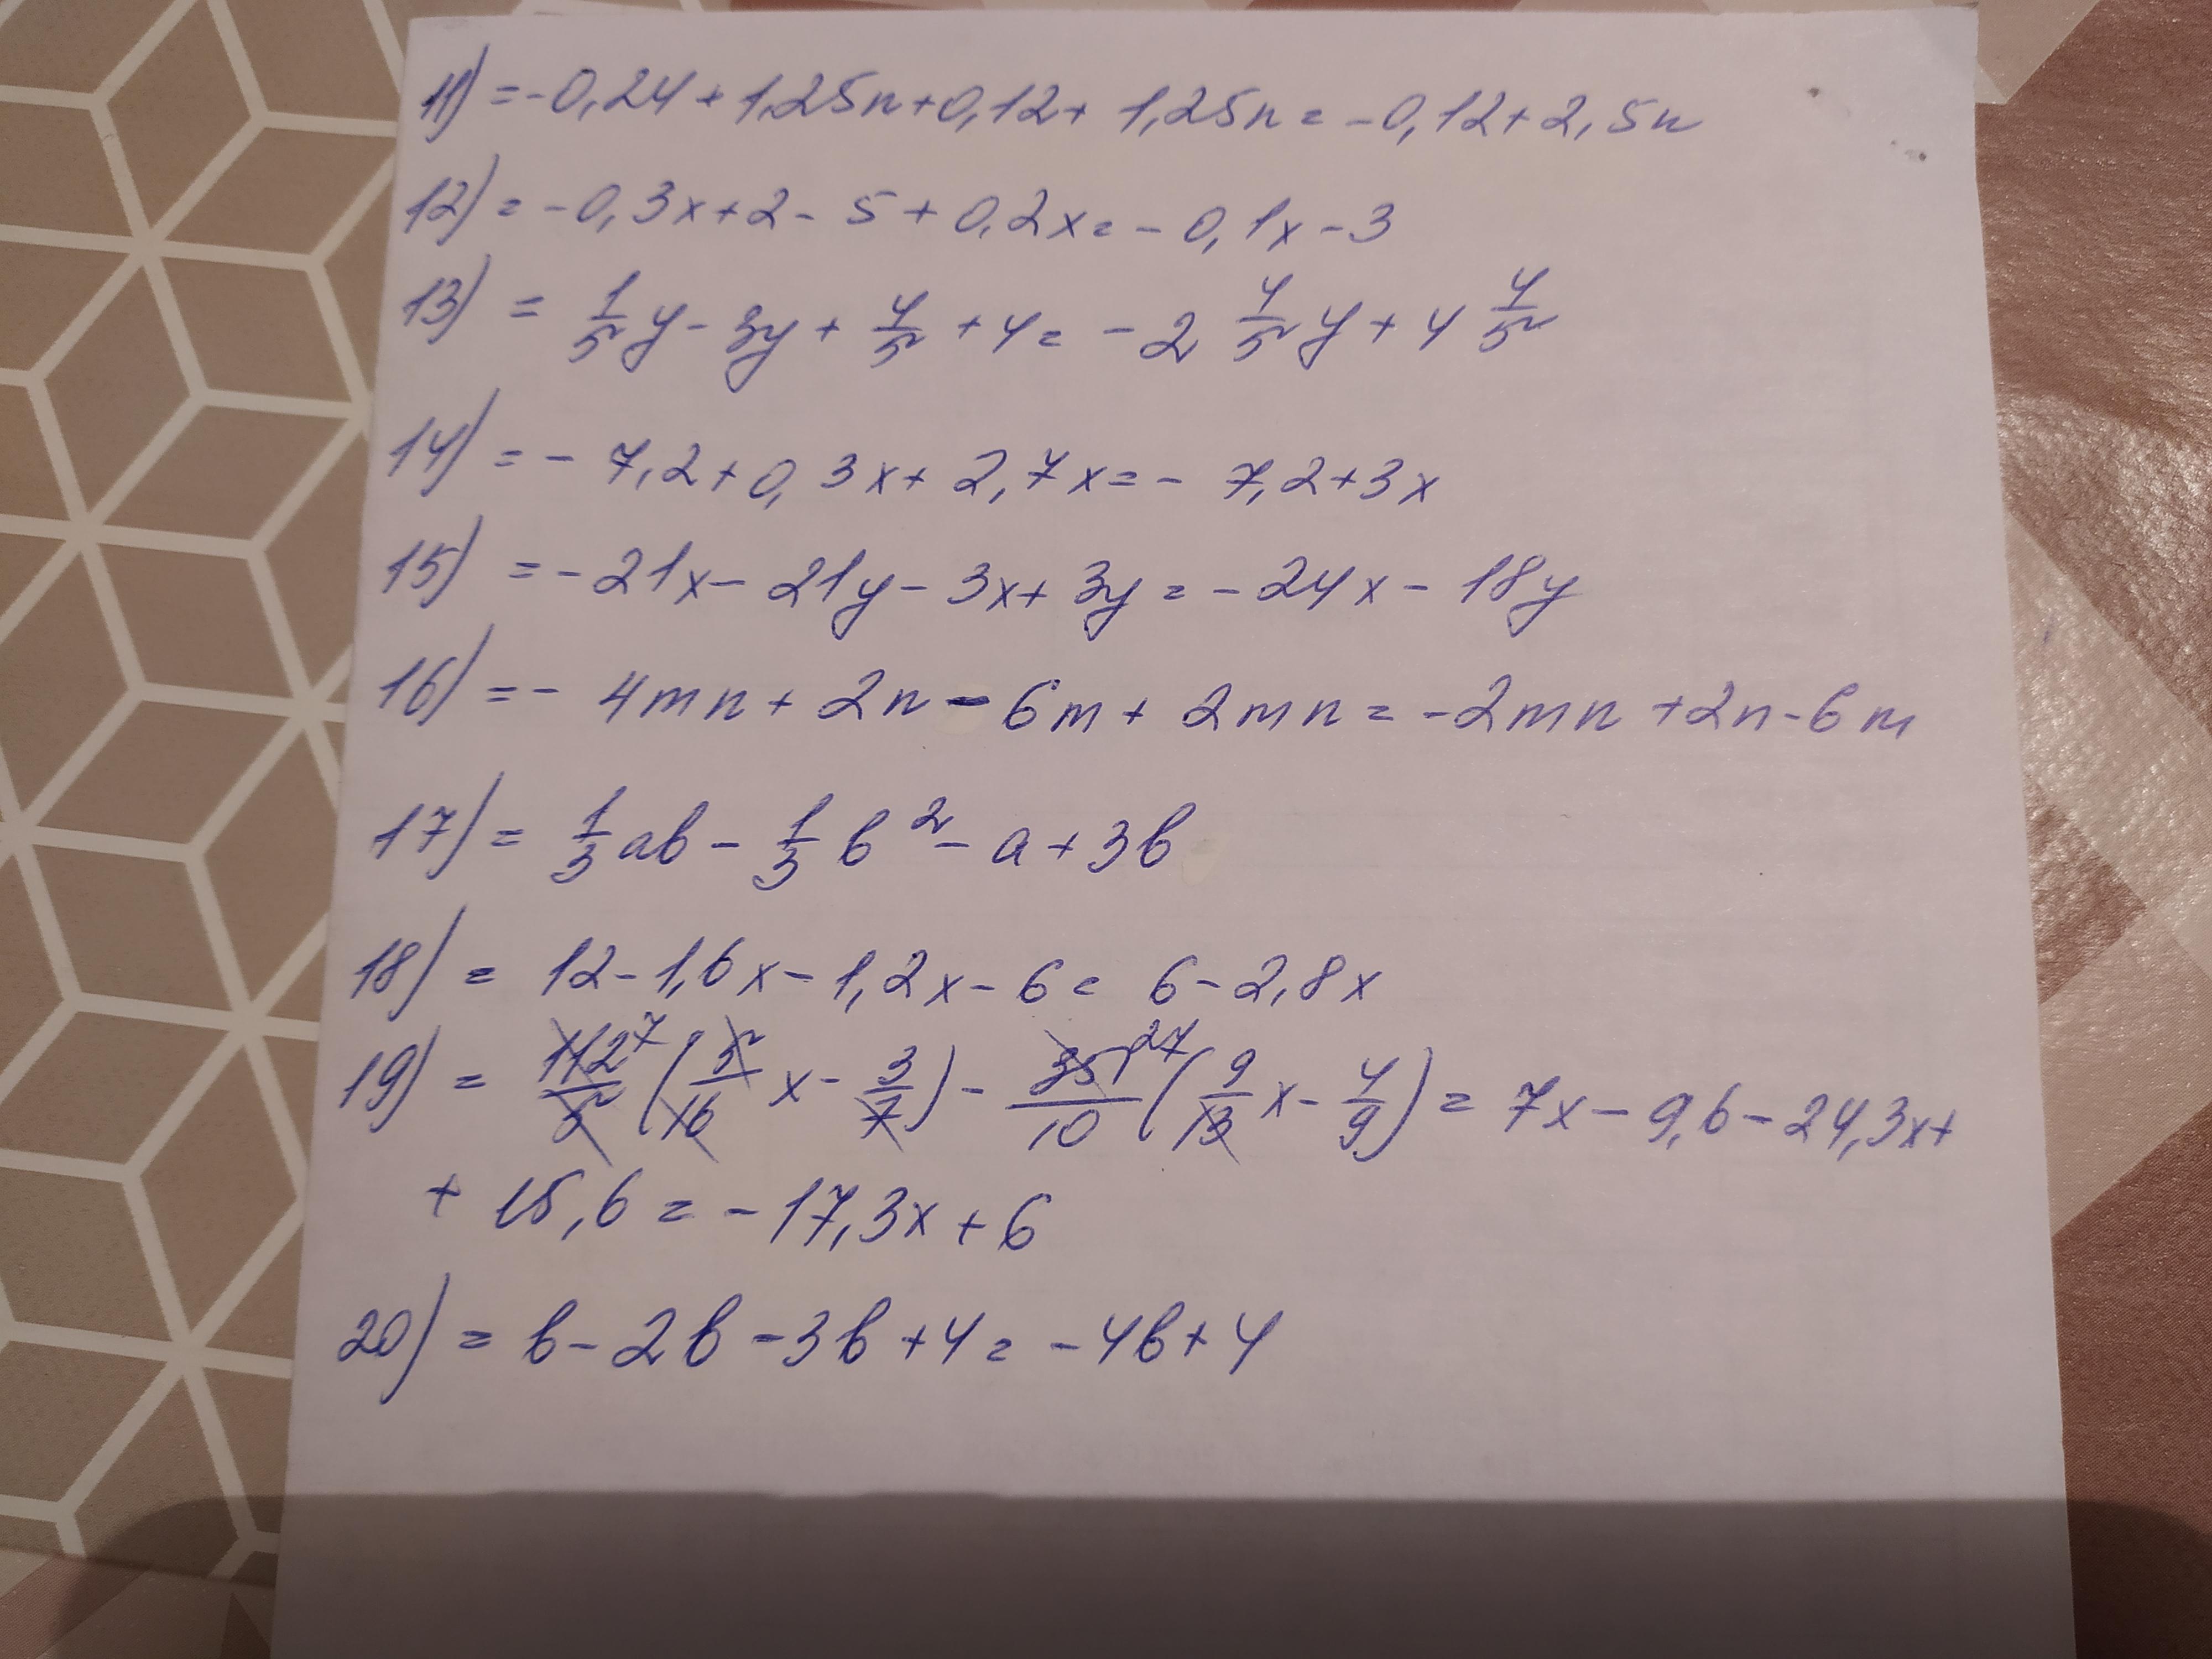 11) = -0,24 + 1,25n + 0,12 + 1,25n = -0,12 + 2,5n
12) = -0,3x + 2 - 5 + 0,2x = -0,1x - 3
13) = 1/5 y - 3y + 4/5 + 4 = -2 4/5 y + 4 4/5
14) = - 7,2 + 0,3x + 2,7x = - 7,2 + 3x
15) = - 21x - 21y - 3x + 3y = - 24x - 18y
16) = - 4mn + 2n - 6m + 2mn = -2mn + 2n - 6m
17) = 1/3 ab - 1/3 b² - a + 3b
18) = 12 - 1,6x - 1,2x - 6 = 6 - 2,8x
19) = 112/5 ⁷ (5/16 x - 3/7) - 351/10 ²⁷ (9/13 x - 4/9) = 7x - 9,6 - 24,3x +
+ 15,6 = - 17,3x + 6
20) = b - 2b - 3b + 4 = - 4b + 4